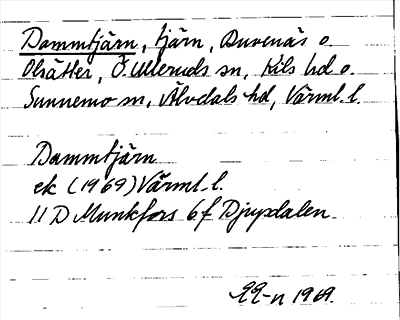 Dammtjärn, tjärn, Duvenäs o.
Olsätter, Ö. Ulleruds sn, Kils hd o.
Sunnemo sn, Älvdals hd, Värml. l.
Dammtjärn
ek (1969) Värml. l.
11 D Munkfors 6 f Djupdalen
1969.